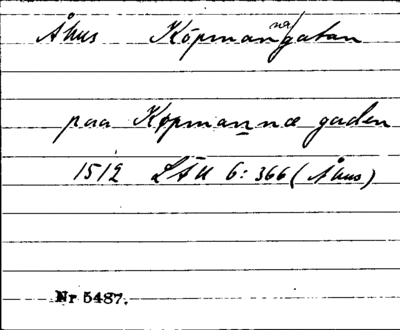 Åhus Köpmannagatan
paa Køpmannæ gaden
1512 LÄU 6:366 (Åhus)
Nr 5487.